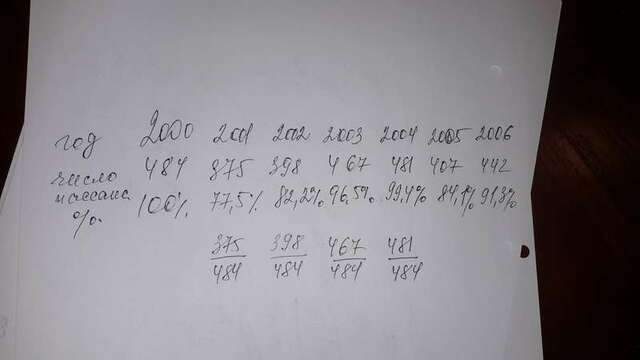 год 2000 2001 2002 2003 2004 2005 2006
число 484 375 398 467 481 407 442
% 100% 77,5% 82,2% 96,5% 99,4% 84,1% 91,3%
375/484 398/484 467/484 481/484